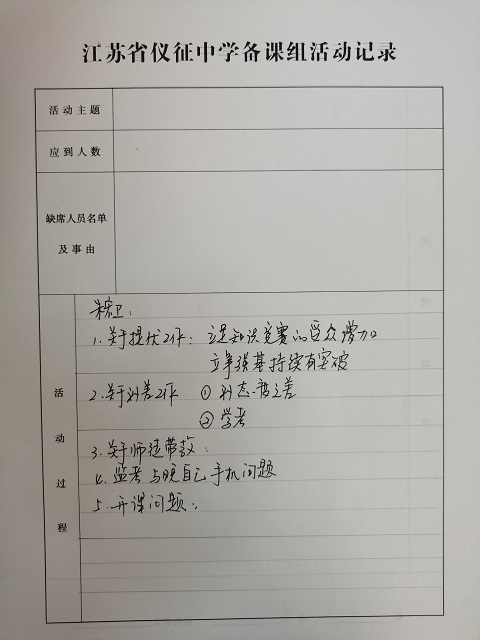 江苏省仪征中学备课组活动记录
活动主题
应到人数
缺席人员名单
及事由
活动过程
1.关于提优工作: 立足知识竞赛的受众增加
力争强基持续有突破
2.关于补差工作 ① 补
② 学考
3.关于师徒带教:
4.监考与晚自己手机问题
5.开课问题: